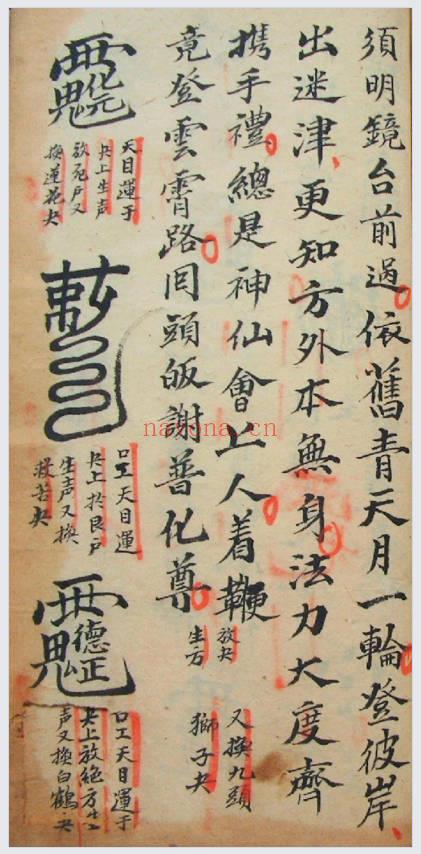 須明鏡台前過依舊青天月一輪登彼岸
出迷津更知方外本無身法力大度齊
携手禮總是神仙會上人着鞭
放夬
又換九頭
獅子夬
竟登雲霄路囘頭皈謝普化尊
生方
天目運于
夬上生声
放死戶又
換蓮花夬
敕
口工天目運
夬上於艮戶
生声又換
救苦夬
德正
口工天目運于
夬上放絶方生
声又換白鶴夬
nayona.cn